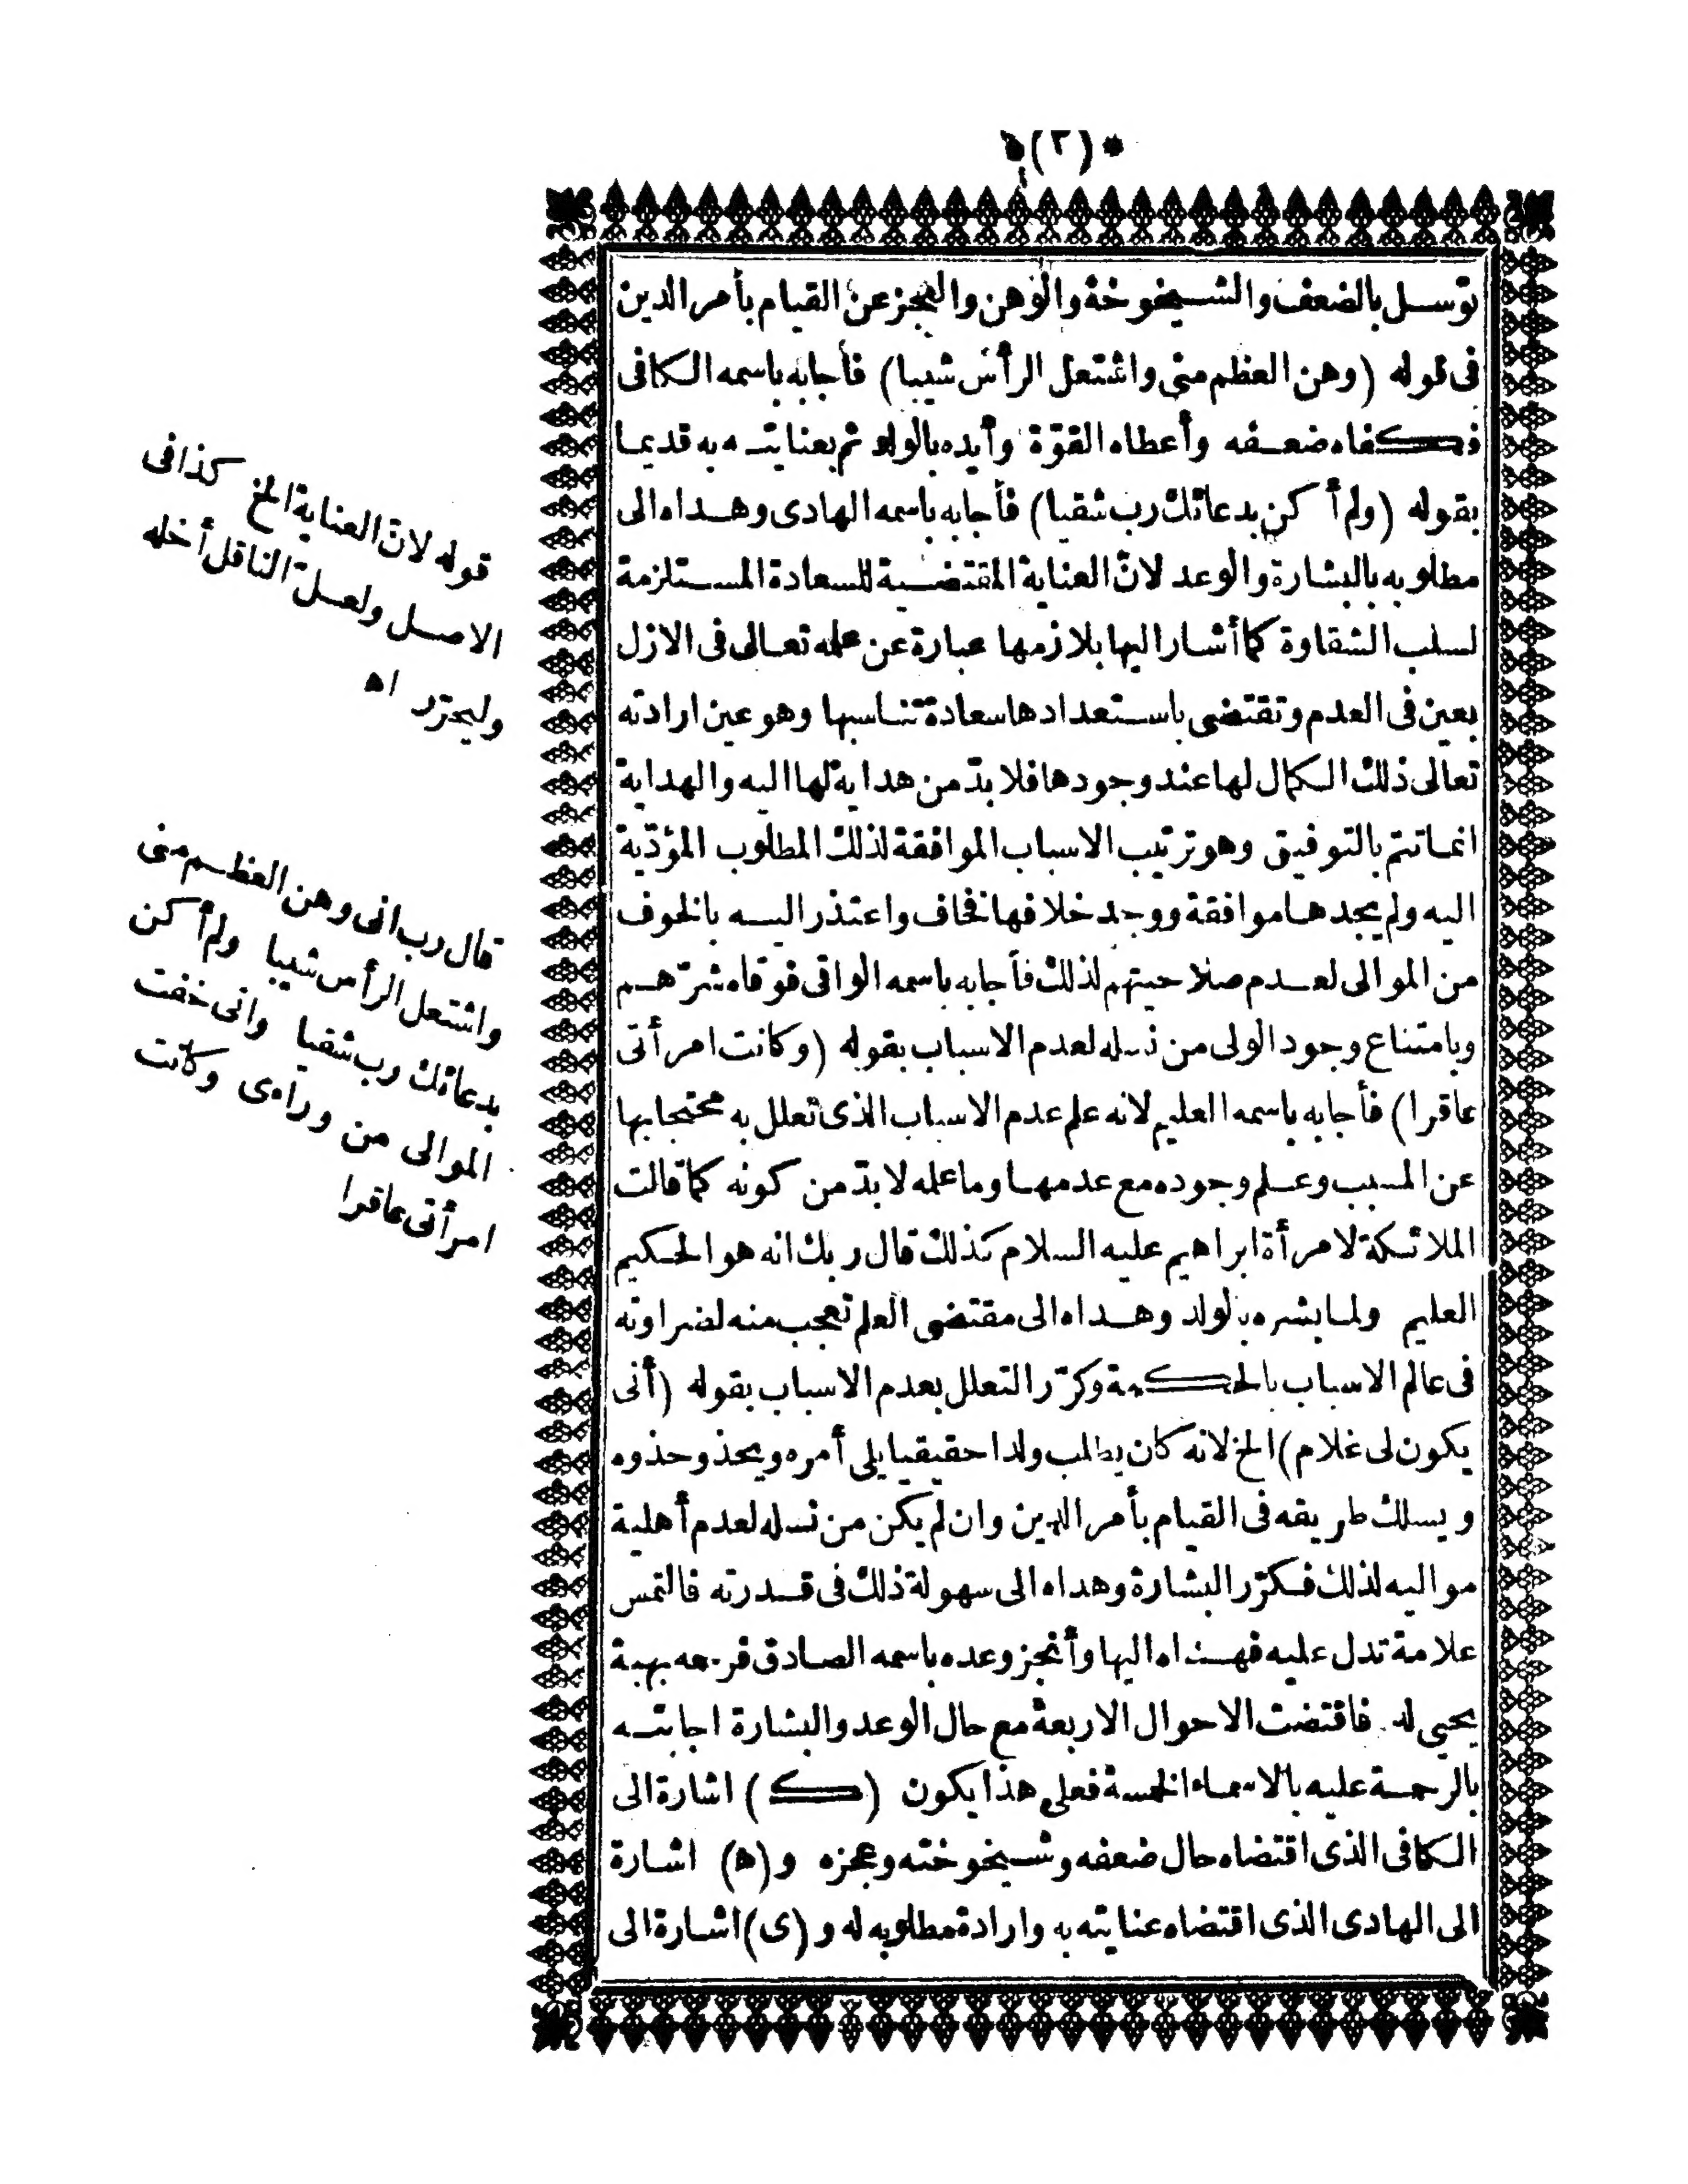 *(٢)*
توسل بالضعف والشيخوخة والوهن والعجز عن القيام بأمر الدين
فى قوله (وهن العظم منى واشتعل الرأس شيبا) فأجابه باسمه الكافى
فكفاه ضعفه وأعطاه القوّة وأيده بالولد ثم بعنايته به قديما
بقوله (ولم أكن بدعائك رب شقيا) فأجابه باسمه الهادى وهداه الى
مطلوبه بالبشارة والوعد لانّ العناية المقتضية للسعادة المستلزمة
لسلب الشقاوة كما أشار اليها بلازمها عبارة عن علمه تعالى فى الازل
بعين فى العدم وتقتضى باستعدادها سعادة تناسبها وهو عين ارادته
تعالى ذلك الكمال لها عند وجودها فلا بدّ من هداية لها اليه والهداية
انما تتم بالتوفيق وهو ترتيب الاسباب الموافقة لذلك المطلوب المؤدّية
اليه ولم يجدها موافقة ووجد خلافها فخاف واعتذر اليه بالخوف
من الموالى لعدم صلاحيتهم لذلك فأجابه باسمه الواقى فوقاه شرّهم
وبامتناع وجود الولى من نسله لعدم الاسباب بقوله (وكانت امرأتى
عاقرا) فأجابه باسمه العليم لانه علم عدم الاسباب الذى تعلل به محتجا بها
عن المسبب وعلم وجوده مع عدمها وما علمه لا بدّ من كونه كما قالت
الملائكة لامرأة ابراهيم عليه السلام كذلك قال ربك انه هو الحكيم
العليم ولما بشره بالولد وهداه الى مقتضى العلم تعجب منه لضراوته
فى عالم الاسباب بالحكمة وكرّر التعلل بعدم الاسباب بقوله (أنى
يكون لى غلام) الخ لانه كان يطلب ولدا حقيقيا يلى أمره ويحذو حذوه
ويسلك طريقه فى القيام بأمر الدين وان لم يكن من نسله لعدم أهلية
مواليه لذلك فكرّر البشارة وهداه الى سهولة ذلك فى قدرته فالتمس
علامة تدل عليه فهداه اليها وأنجز وعده باسمه الصادق فرحمه بهبة
يحيى له فاقتضت الاحوال الاربعة مع حال الوعد والبشارة اجابته
بالرحمة عليه بالاسماء الخمسة فعلى هذا يكون (ك) اشارة الى
الكافى الذى اقتضاه حال ضعفه وشيخوخته وعجزه و(ه) اشارة
الى الهادى الذى اقتضاه عنايته به وارادة مطلوبه له و(ى) اشارة الى
قوله لانّ العناية الخ كذا فى
الاصل ولعلّ الناقل أخله
وليحرّر اه
قال رب انى وهن العظم منى
واشتعل الرأس شيبا ولم أكن
بدعائك رب شقيا وانى خفت
الموالى من وراءى وكانت
امرأتى عاقرا